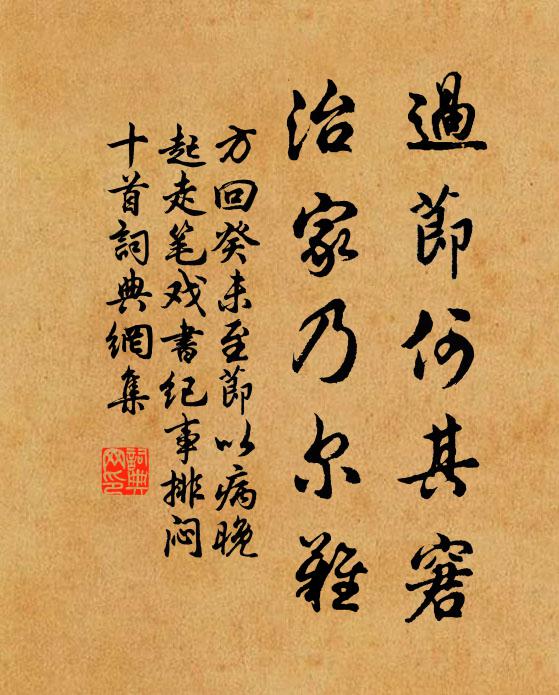 過節何其窘
治家乃尔難
方回癸未至節以病晚
起走笔戏書纪事排闷
十首詞典網集
詞典網印